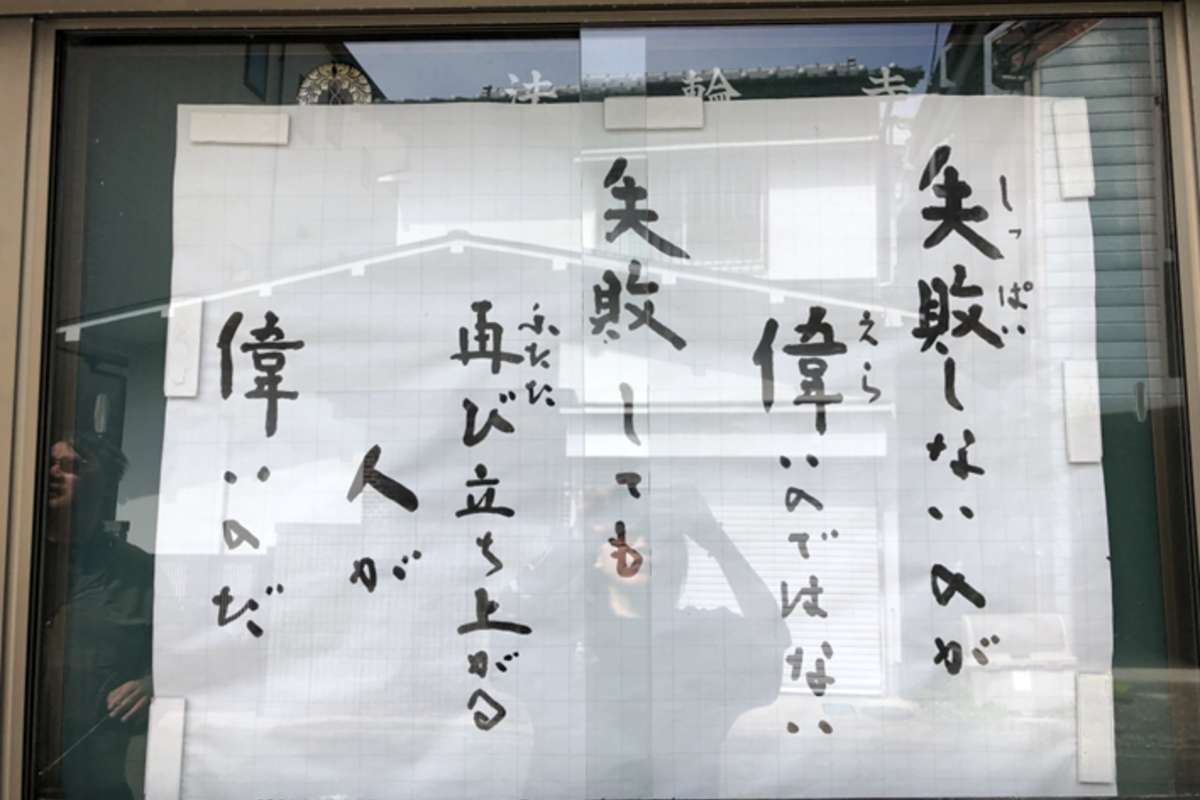 法輪寺
しっぱい
失敗しないのが
えら
偉いのではない
失敗しても
ふたた
再び立ち上がる
人が
偉いのだ